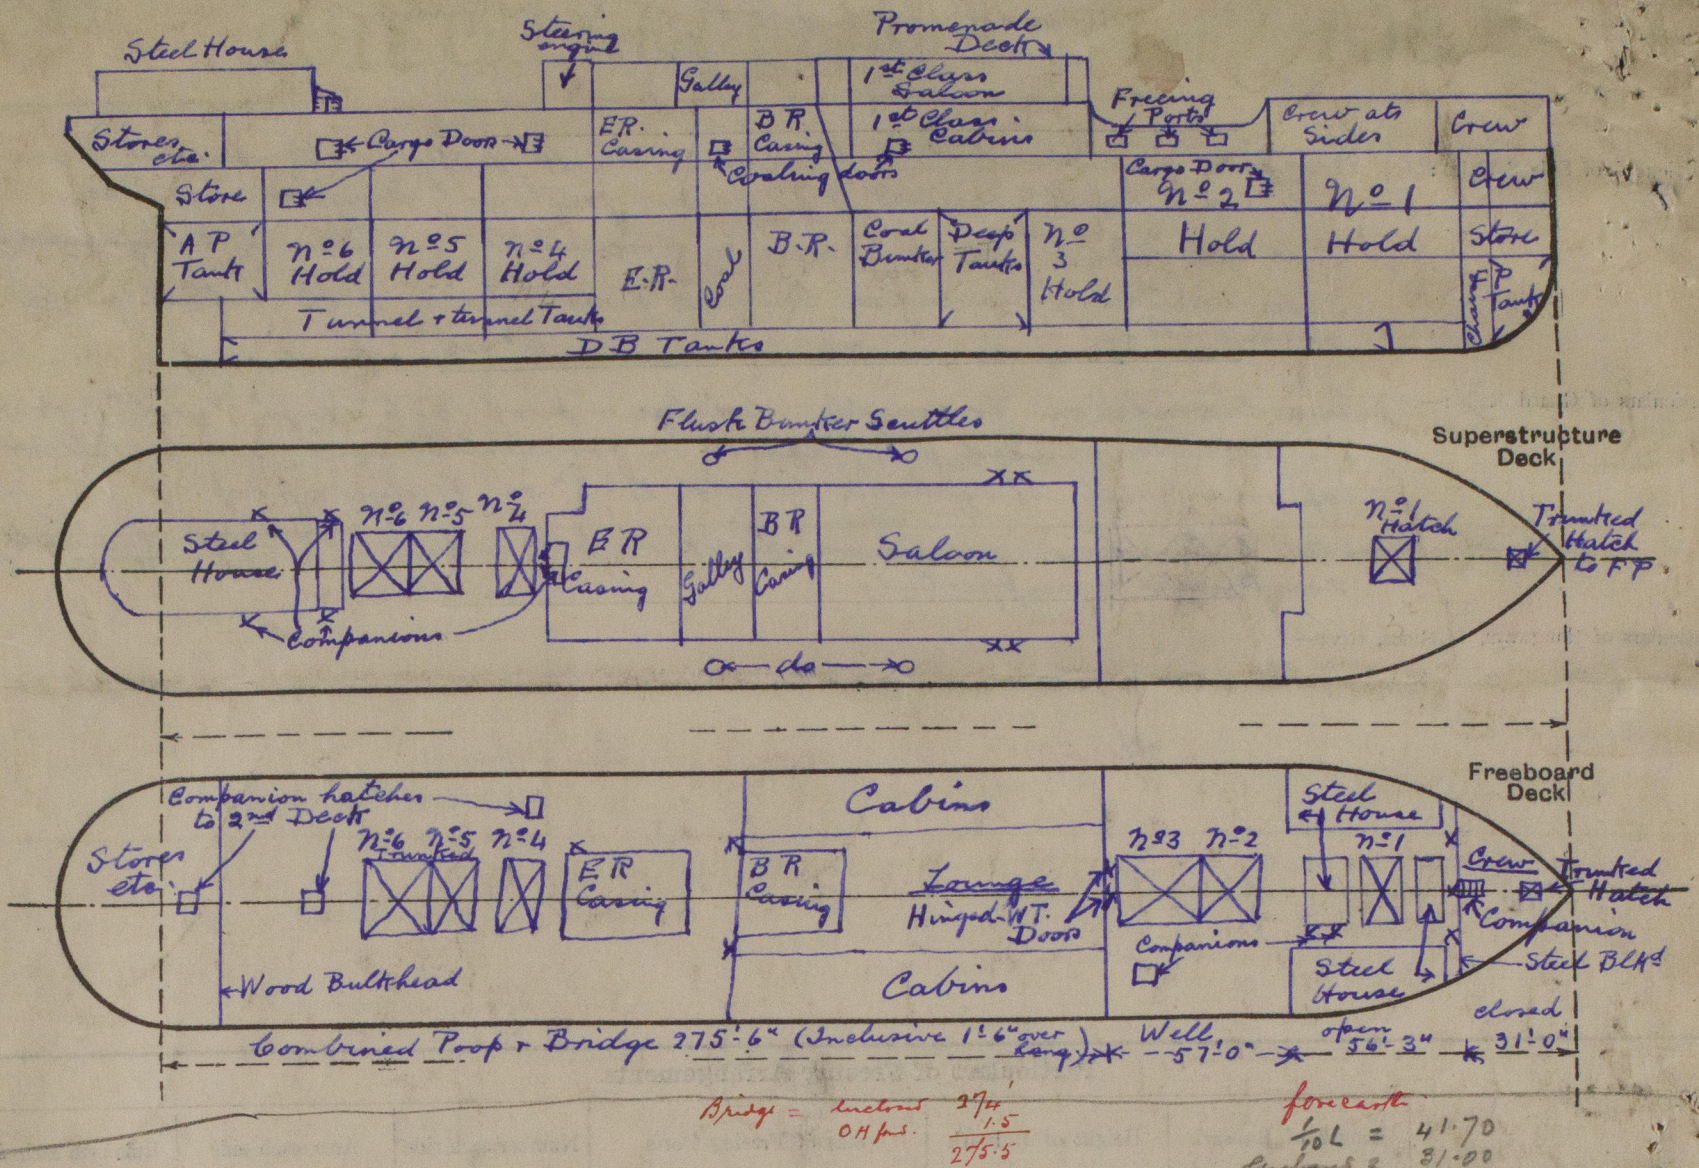 Steel House
Steering
engine
Promenade
Deck
Galley
1st Class
Saloon
Stores
etc.
Cargo Doors
E.R.
Casing
B R
Casing
1st Class
Cabins
Coaling doors
Freeing
Ports
Crew at
Sides
Crew
Store
Cargo Door
No 2
Hold
No 1
Hold
Crew
Store
A P
Tank
No 6
Hold
No 5
Hold
No 4
Hold
E.R.
Coal
B.R.
Coal
Bunker
Deep
Tanks
No
3
Hold
Chain
F P
Tank
Tunnel + tunnel Tanks
D B Tanks
Flush Bunker Scuttles
Superstructure
Deck
Steel
House
No 6
No 5
No 4
E R
Casing
Galley
B R
Casing
Saloon
No 1
Hatch
Trunked
Hatch
to F P
Companions
do
Freeboard
Deck
Companion hatches
to 2nd Deck
Stores
etc.
No 6
No 5
Trunked
No 4
E R
Casing
Cabins
B R
Casing
Lounge
Hinged W.T.
Doors
Cabins
No 3
No 2
Steel
House
No 1
Crew
Trunked
Hatch
Companion
Companions
Steel
House
Steel Blkd
Wood Bulkhead
Combined Poop + Bridge 275'-6" (Inclusive 1'-6" over
hang)
Well
57'-0"
open
56'-3"
closed
31'-0"
Bridge = enclosed 274'
OH 1.5
275.5
forecastle
1/10 L = 41.70
31.00